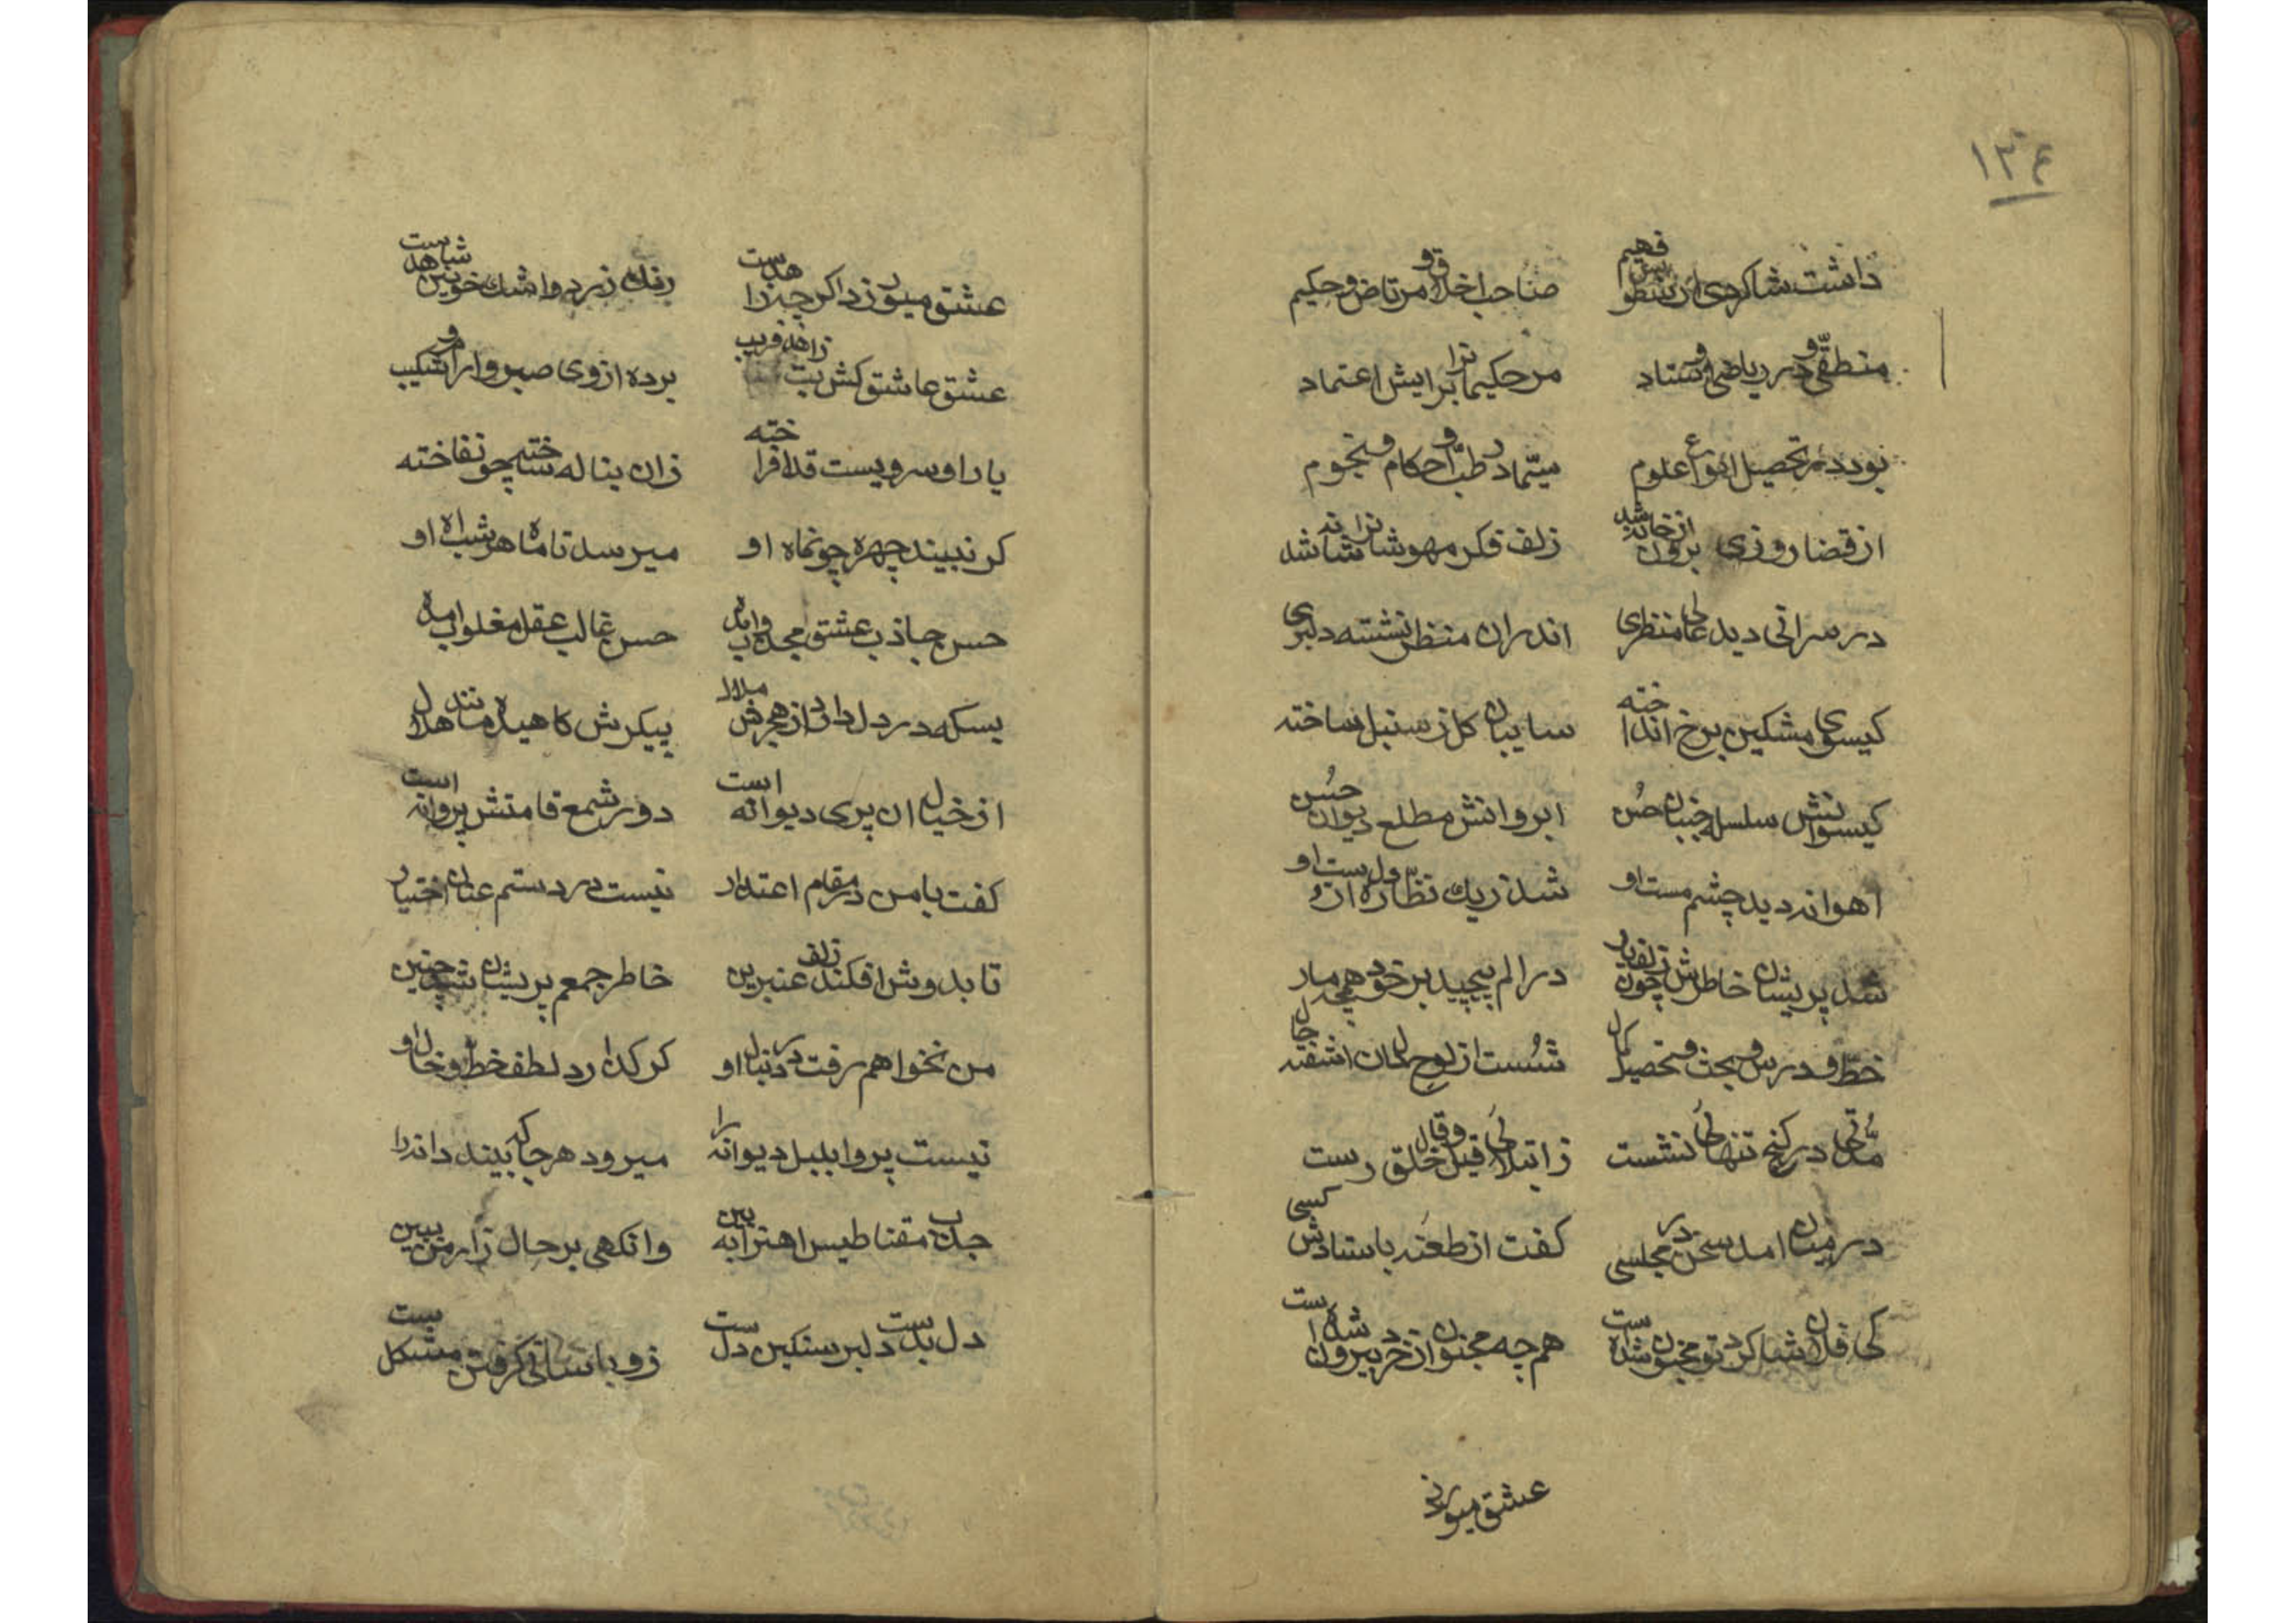 ١٣٤
داشت شاکردی ارسطو بس فهیم صاحب اخلاق و مرتاض و حکیم
منطقی و در ریاضی اوستاد مر حکیمانرا برایش اعتماد
بود در تحصیل انواع علوم سیّما در طبّ و احکام و نجوم
از قضا روزی برون از خانه شد زلف فکر مهوشانرا شانه شد
در سرائی دید عالی منظری اندران منظر نشسته دلبری
کیسوی مشکین برخ انداخته سایبان کل ز سنبل ساخته
کیسوانش سلسله جنبان حسن ابروانش مطلع دیوان حسن
اهوانه دید چشم مست او شد ز یک نظّاره دل از دست او
شد پریشان خاطرش چون زلف یار در الم پیچید بر خود همچو مار
خطّ و درس و بحث و تحصیل کمال شست از لوح دل ان اشفته حال
مدّتی در کنج تنهائی نشست ز ابتلای قیل و قال خلق رست
در میان امد سخن در مجلسی کفت از طعنه باستادش کسی
کی فلان شاکرد تو مجنون شده است همچه مجنون از خرد بیرون شده است
عشق میورزد
عشق میورزد اکر چه زاهدست رنک زرد و اشک خونین شاهدست
عشق عاشق کش بت زاهد فریب برده از وی صبر و ارام و شکیب
یار او سرویست قد افراخته زان بناله ساخته چون فاخته
کر نبیند چهره چون ماه او میرسد تا ماه هر شب اه او
حسن جاذب عشق مجذوب امده حسن غالب عقل مغلوب امده
بسکه در دل دارد از هجرش ملال پیکرش کاهیده مانند هلال
از خیال ان پری دیوانه است دور شمع قامتش پروانه است
کفت با من در مقام اعتذار نیست در دستم عنان اختیار
تا بدوش افکند زلف عنبرین خاطر جمعم پریشان شد چنین
من نخواهم رفت در دنبال او کر کذارد لطف خط و خال او
نیست پروا بلبل دیوانه را میرود هر جا که بیند دانه را
جذب مقناطیس اهنرا ببین وانکهی بر حال زار من ببین
دل بدست دلبر سنکین دلست زو باسانی کرفتن مشکلست